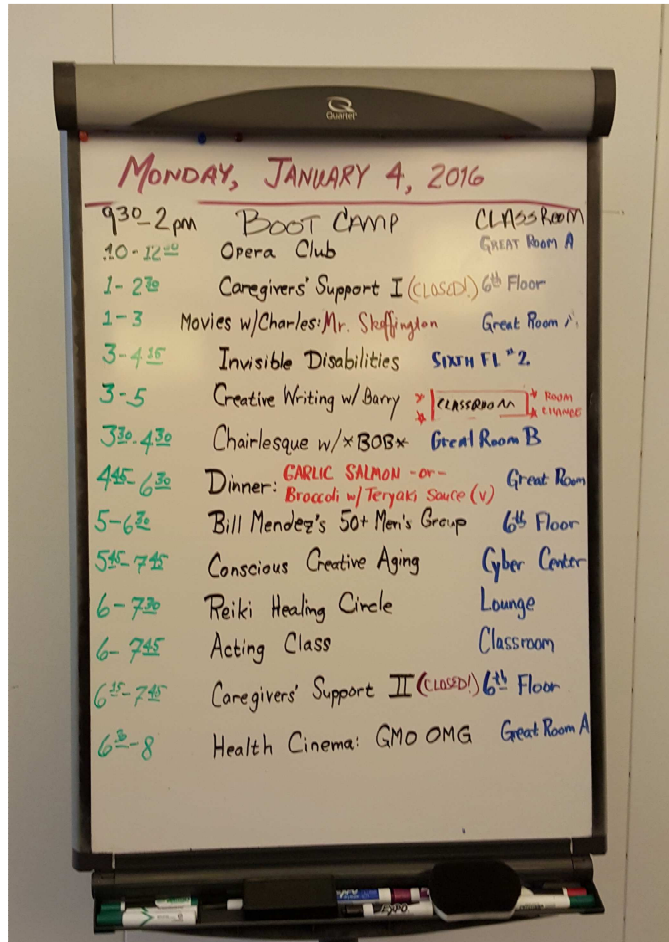 Quartet
MONDAY, JANUARY 4, 2016
930-2pm BOOT CAMP CLASSROOM
10-1200 Opera Club GREAT ROOM A
1-230 Caregivers' Support I (CLOSED!) 6th Floor
1-3 Movies w/Charles: Mr. Skeffington Great Room
3-415 Invisible Disabilities SIXTH FL #2
3-5 Creative Writing w/ Barry ** CLASSROOM ** ROOM CHANGE
330-430 Chairlesque w/ *BOB* Great Room B
445-630 Dinner: GARLIC SALMON -or- Great Room
Broccoli w/ Teryaki Sauce (V)
5-630 Bill Mendez's 50+ Men's Group 6th Floor
545-745 Conscious Creative Aging Cyber Center
6-730 Reiki Healing Circle Lounge
6-745 Acting Class Classroom
615-745 Caregivers' Support II (CLOSED!) 6th Floor
630-8 Health Cinema: GMO OMG Great Room A
EXPO
EXPO